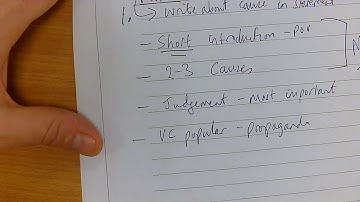 1. → Write about cause in statement
- Short introduction - POV
- 2-3 Causes
- Judgement - most important
- VC popular - propaganda